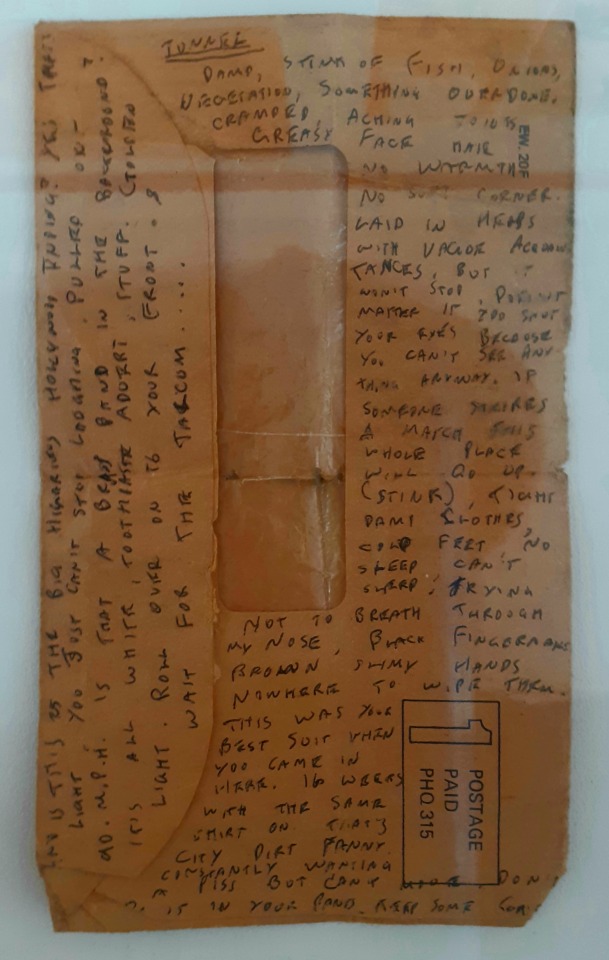 TUNNEL
DAMP, STINK OF FISH, ONIONS,
VEGETATION, SOMETHING OVERDONE.
CRAMPED, ACHING JOINTS
GREASY FACE HAIR
NO WARMTH
NO SOFT CORNER.
LAID IN HEAPS
WITH VAGUE ACQUAIN
TANCES, BUT I
WON'T STOP, DOESN'T
MATTER IF YOU SHUT
YOUR EYES BECAUSE
YOU CAN'T SEE ANY
THING ANYWAY. IF
SOMEONE STRIKES
A MATCH THIS
WHOLE PLACE
WILL GO UP.
(STINK), TIGHT
DAMP CLOTHES,
COLD FEET, NO
SLEEP CAN'T
SLEEP, TRYING
NOT TO BREATH THROUGH
MY NOSE, BLACK FINGERNAILS
BROWN SLIMY HANDS
NOWHERE TO WIPE THEM.
THIS WAS YOUR
BEST SUIT WHEN
YOU CAME IN
HERE. 16 WEEKS
WITH THE SAME
SHIRT ON THAT'S
CITY DIRT FANNY.
CONSTANTLY WANTING
A PISS BUT CAN'T MOVE, DON'T
IS IN YOUR HAND KEEP SOME
EW. 20F
1
POSTAGE
PAID
PHQ 315
IS THIS THE BIG HOLLYWOOD ENDING?
LIGHT YOU JUST CAN'T STOP LOOKING PULLED ON-
90. M.P.H. IS THAT A BRASS BAND IN THE BACKGROUND?
IT'S ALL WHITE, TOOTHPASTE ADVERT, STUFF.
LIGHT. ROLL OVER ON TO YOUR FRONT. &
WAIT FOR THE